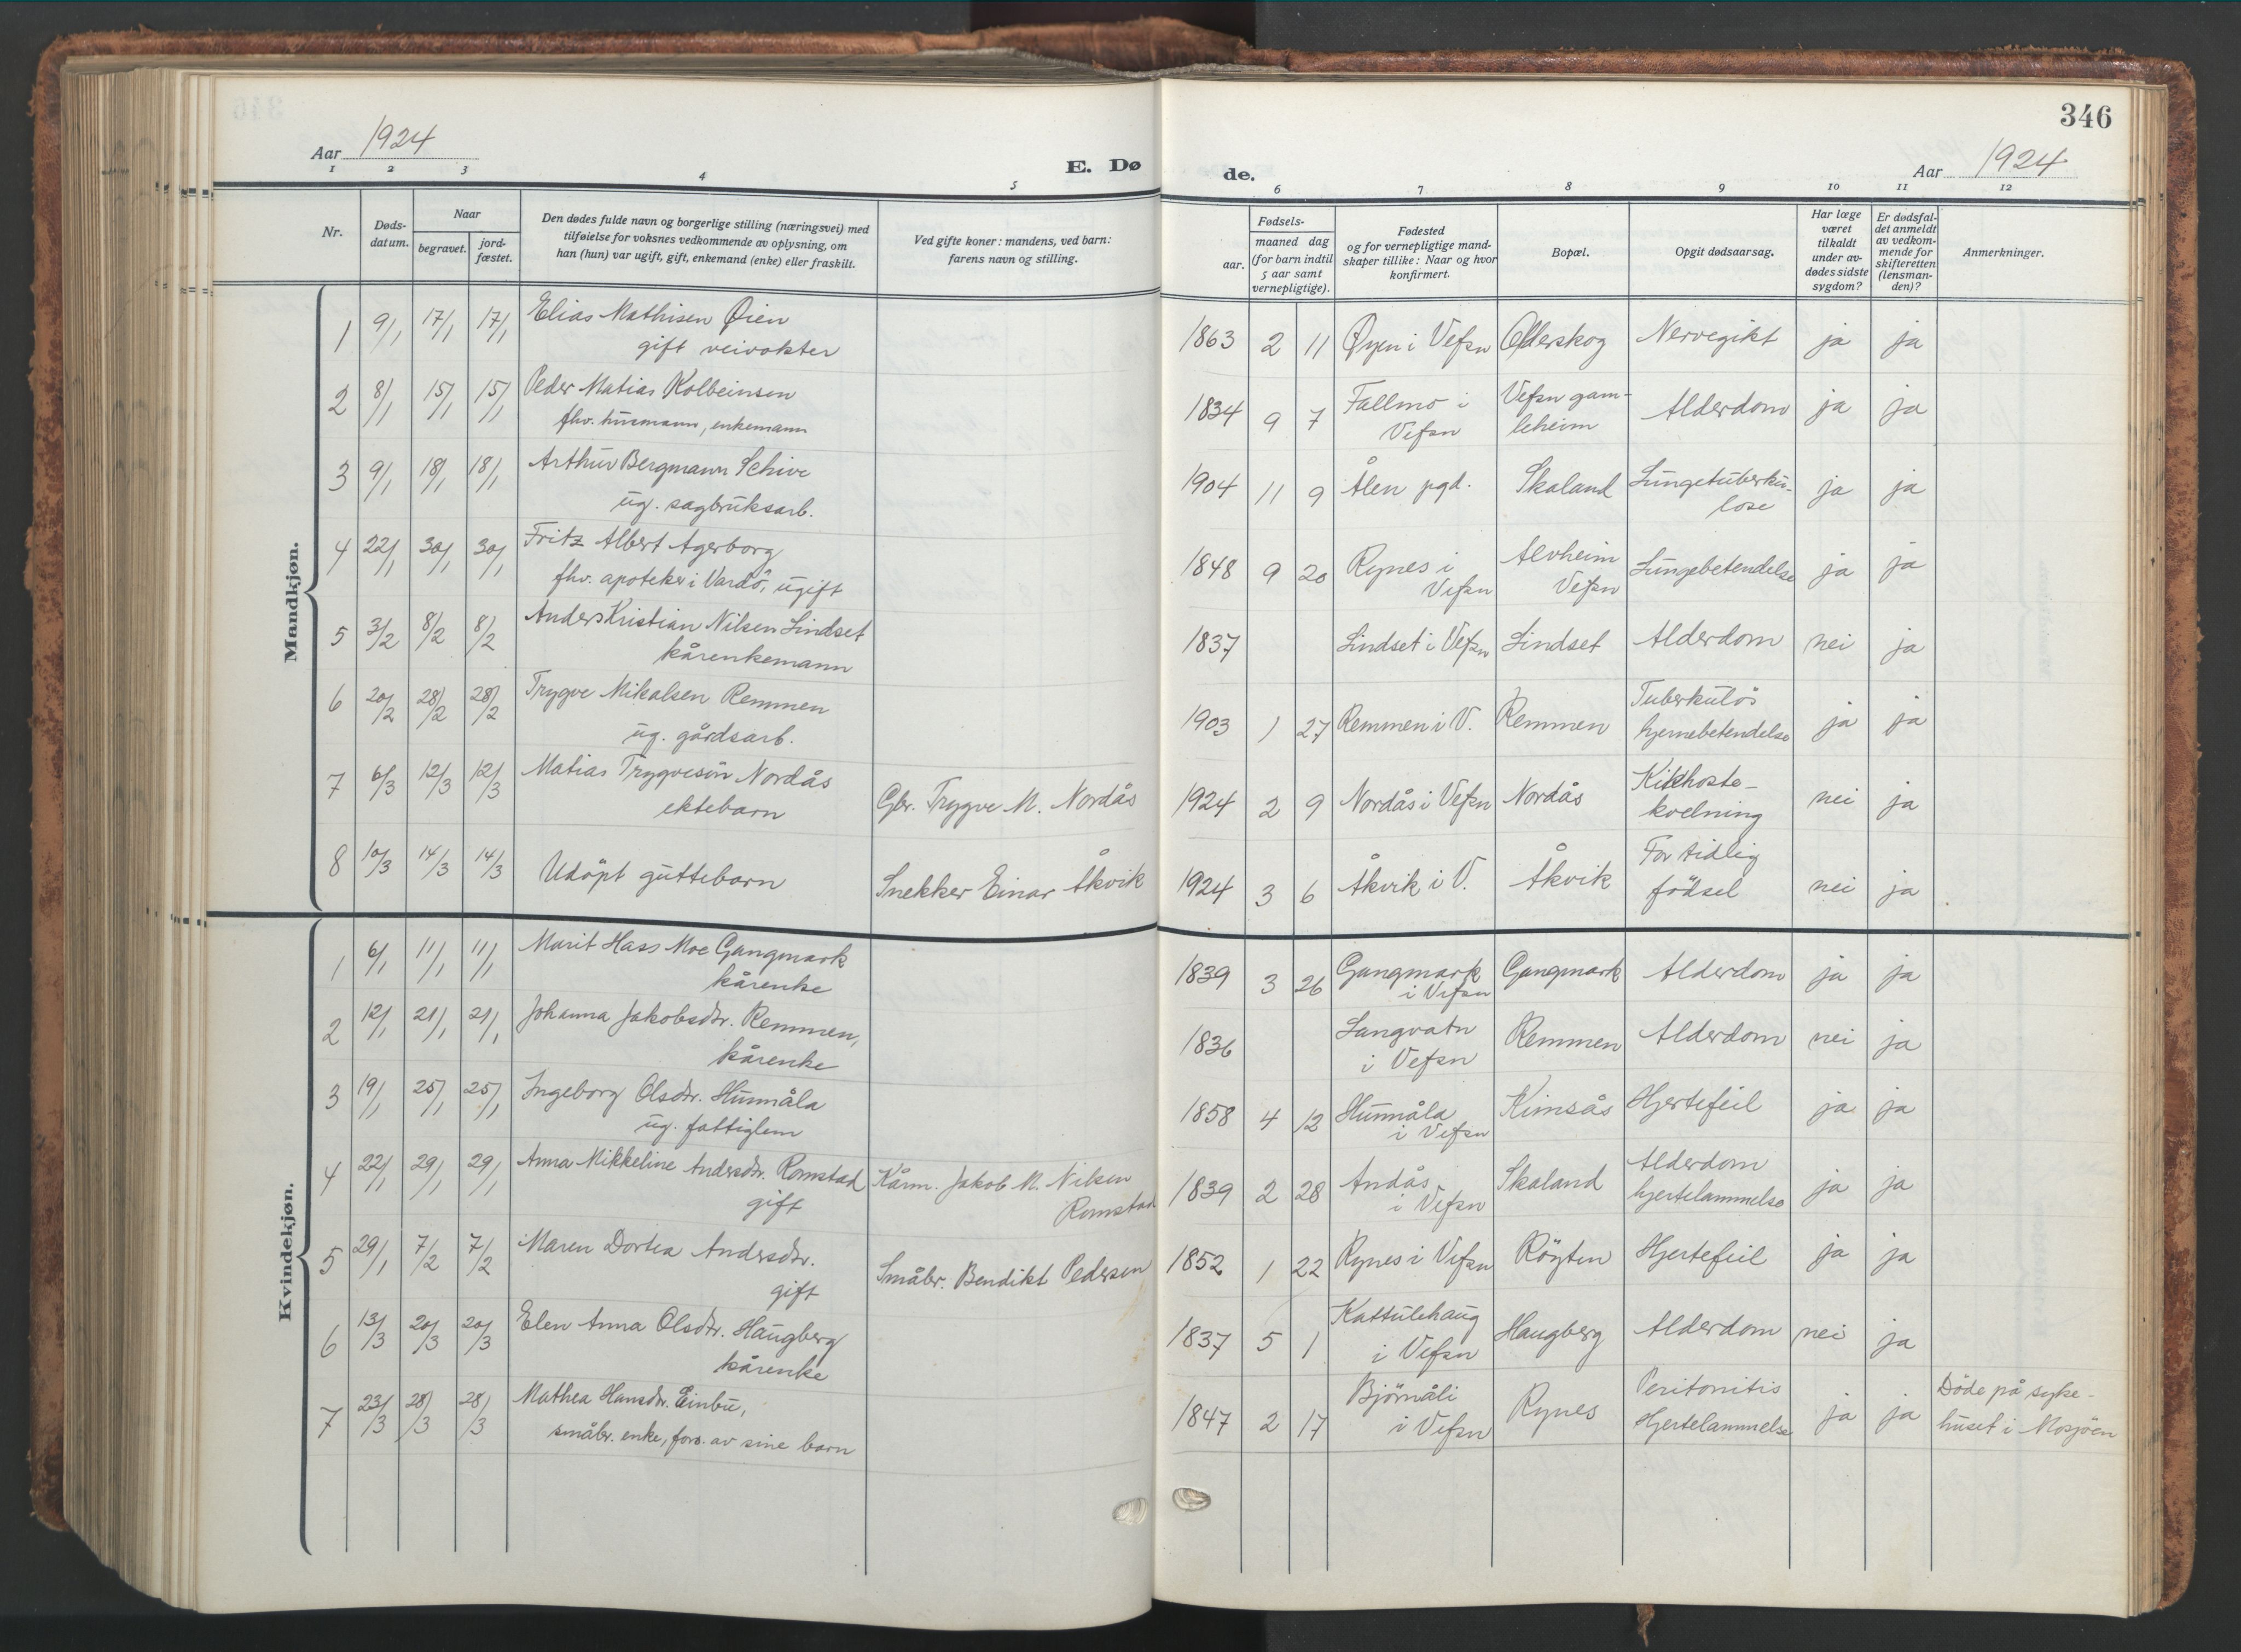 346
Aar 1924
E. Døde.
Aar 1924
1 2 3 4 5 6 7 8 9 10 11 12
Nr.
Døds-
datum.
Naar
begravet.
jord-
fæstet.
Den dødes fulde navn og borgerlige stilling (næringsvei) med
tilføielse for voksnes vedkommende av oplysning, om
han (hun) var ugift, gift, enkemand (enke) eller fraskilt.
Ved gifte koner: mandens, ved barn:
farens navn og stilling.
Fødsels-
aar.
maaned dag
(for barn indtil
5 aar samt
vernepligtige).
Fødested
og for vernepligtige mand-
skaper tillike: Naar og hvor
konfirmert.
Bopæl.
Opgit dødsaarsag.
Har læge
været
tilkaldt
under av-
dødes sidste
sygdom?
Er dødsfal-
det anmeldt
av vedkom-
mende for
skifteretten
(lensman-
den)?
Anmerkninger.
Mandkjøn.
1 9/1 17/1 17/1 Elias Mathisen Øien
gift veivokter
1863 2 11 Øyen i Vefsn Olderskog Nervegikt ja ja
2 8/1 15/1 15/1 Peder Matias Kolbeinsen
fhv. husmann, enkemann
1834 9 7 Fallmo i
Vefsn
Vefsn gam-
leheim
Alderdom ja ja
3 9/1 18/1 18/1 Arthur Bergmann Schive
ug. sagbruksarb.
1904 11 9 Ålen pgd. Skaland Lungetuberku-
lose
ja ja
4 22/1 30/1 30/1 Fritz Albert Agerborg
fhv. apoteker i Vardö, ugift
1848 9 20 Rynes i
Vefsn
Alvheim
Vefsn
Lungebetendelse ja ja
5 3/2 8/2 8/2 Anders Kristian Nilsen Lindset
kårenkemann
1837 Lindset i Vefsn Lindset Alderdom nei ja
6 20/2 28/2 28/2 Trygve Mikalsen Remmen
ug. gårdsarb.
1903 1 27 Remmen i V. Remmen Tuberkulös
hjernebetendelse
ja ja
7 6/3 12/3 12/3 Matias Trygvesön Nordås
ektebarn
Gbr. Trygve M. Nordås
1924 2 9 Nordås i Vefsn Nordås Kikhoste-
kvelning
nei ja
8 10/3 14/3 14/3 Udöpt guttebarn
Snekker Einar Åkvik
1924 3 6 Åkvik i V. Åkvik For tidlig
födsel
nei ja
Kvindekjøn.
1 6/1 11/1 11/1 Marit Hass Moe Gangmark
kårenke
1839 3 26 Gangmark
i Vefsn
Gangmark Alderdom ja ja
2 12/1 21/1 21/1 Johanna Jakobsdtr. Remmen,
kårenke
1836 Langvatn
i Vefsn
Remmen Alderdom nei ja
3 19/1 25/1 25/1 Ingeborg Olsdtr. Hunmåla
ug. fattiglem
1858 4 12 Hunmåla
i Vefsn
Kimsås Hjertefeil ja ja
4 22/1 29/1 29/1 Anna Mikkeline Andersdtr. Romstad
gift
Kårm. Jakob M. Nilsen
Romstad
1839 2 28 Andås
i Vefsn
Skaland Alderdom
hjertelammelse
ja ja
5 29/1 7/2 7/2 Maren Dortea Andersdtr.
gift
Småbr. Bendikt Pedersen
1852 1 22 Rynes i Vefsn Röyten Hjertefeil ja ja
6 13/3 20/3 20/3 Elen Anna Olsdtr. Haugberg
kårenke
1837 5 1 Kattulehaug
i Vefsn
Haugberg Alderdom nei ja
7 23/3 28/3 28/3 Mathea Hansdtr. Einbu,
småbr. enke, fors. av sine barn
1847 2 17 Björnåli
i Vefsn
Rynes Peritonitis
Hjertelammelse
ja ja Döde på syke-
huset i Mosjöen